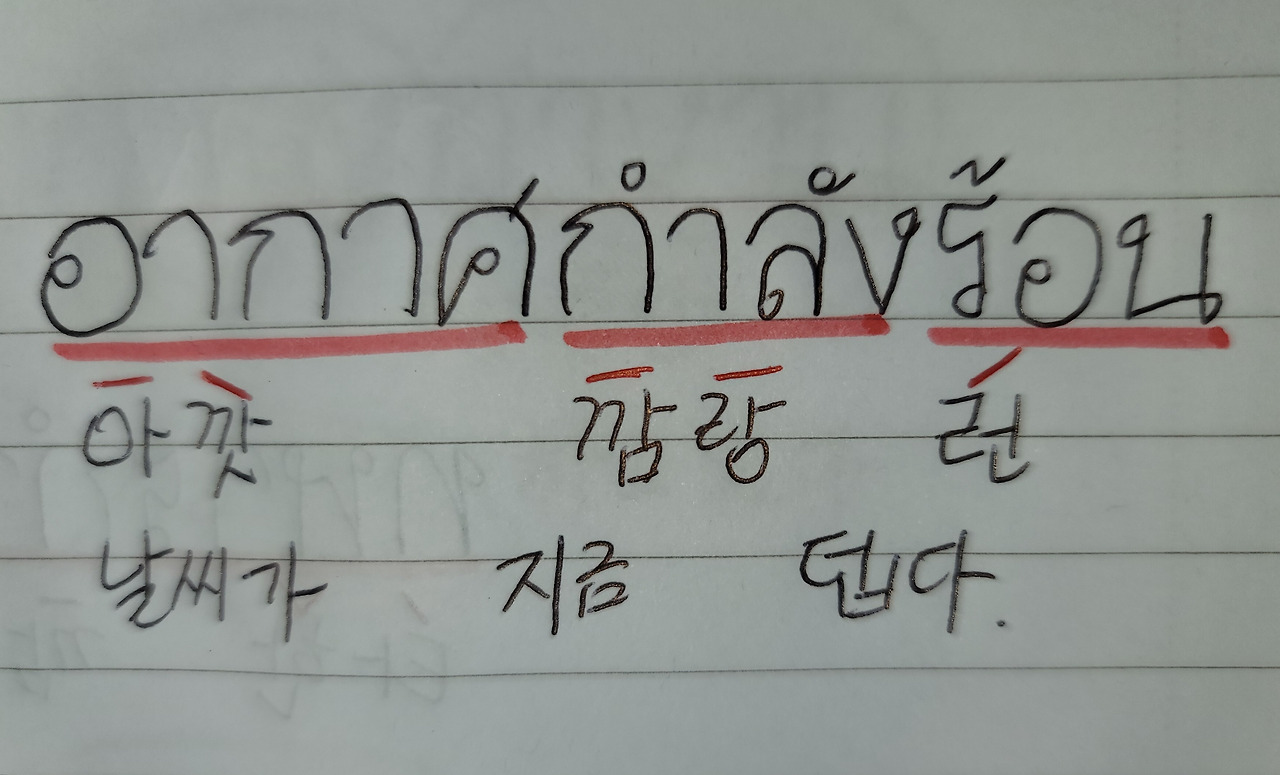 อากาศกำลังร้อน
아깟 깜랑 런
날씨가 지금 덥다.